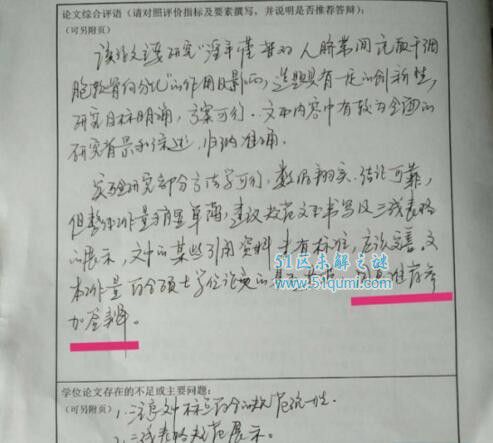 论文综合评语(请对照评价指标及要素撰写,并说明是否推荐答辩):
(可另附页)
该论文主要研究"淫羊藿苷对人脐带间充质干细
胞软骨向分化"的作用及影响,选题具有一定的创新性,
研究目标明确,方案可行。文中内容中有较为全面的
研究背景和综述,归纳准确。
实验研究部分方法学可行,数据翔实,结论可靠,
但整体工作量稍显单薄,建议规范文书书写及三线表格
的展示,文中的某些引用资料未有标注,应该完善,
本工作量符合硕士学位论文的基本要求,同意推荐参
加答辩。
51区未解之谜
www.51qumi.com
学位论文存在的不足或主要问题:
(可另附页)
1. 注意文中标点符合的规范统一性。
2. 三线表格规范展示。